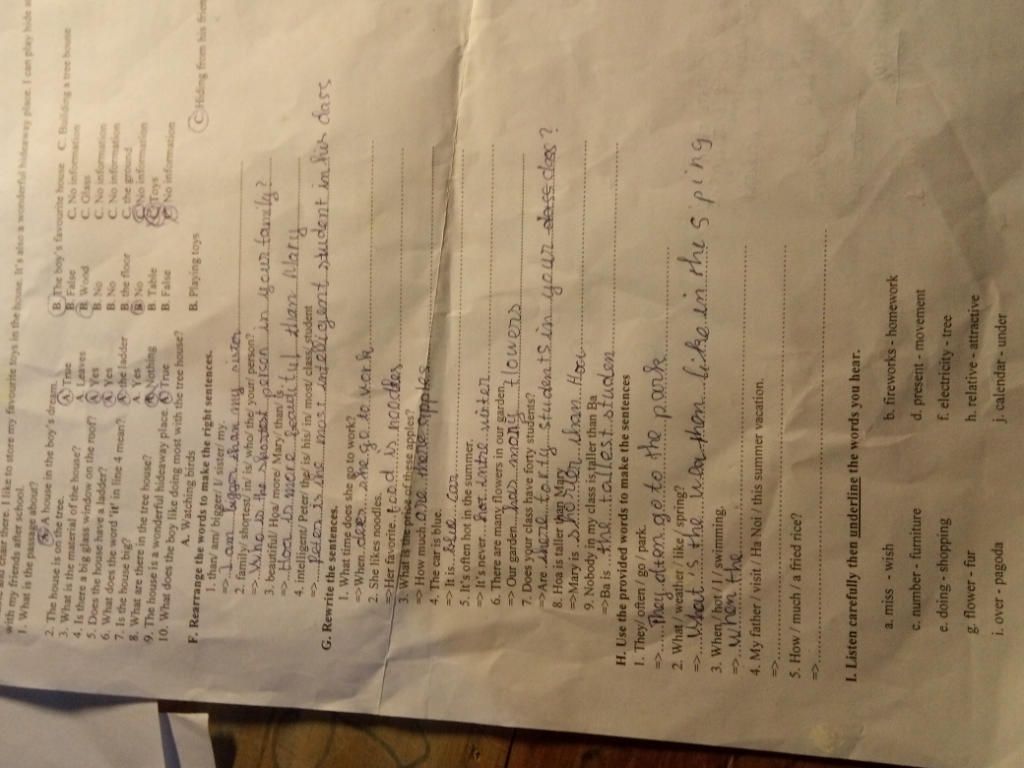 and clear there. I like to store my favorite toys in the house. It's also a wonderful hideaway place. I can play hide a
with my friends after school.
1. What is the passage about?
A. A house in the boy's dream. B. The boy's favourite house C. Building a tree house
2. The house is on the tree. A. True B. False C. No information
3. What is the material of the house? A. Leaves B. Wood C. Glass
4. Is there a big glass window on the roof? A. Yes B. No C. No information
5. Does the house have a ladder? A. Yes B. No C. No information
6. What does the word 'it' in line 4 mean? A. the ladder B. the floor C. the ground
7. Is the house big? A. Yes B. No C. No information
8. What are there in the tree house? A. Nothing B. Table C. Toys
9. The house is a wonderful hideaway place. A. True B. False C. No information
10. What does the boy like doing most with the tree house?
A. Watching birds B. Playing toys C. Hiding from his frien
F. Rearrange the words to make the right sentences.
1. than/ am/ bigger/ I/ sister/ my.
=> I am than my
2. family/ shortest/ in/ who/ the/ your/ person?
=> Who is the person in your family?
3. beautiful/ Hoa/ more/ Mary/ than/ is
=> Hoa is more beautiful than Mary
4. intelligent/ Peter/ the/ is/ his/ in/ most/ class/ student
=> Peter is the most intelligent student in his
G. Rewrite the sentences.
1. What time does she go to work?
=> When does she go to work
2. She likes noodles.
=> Her favorite food is noodles
3. What is the price of these apples?
=> How much are these apples
4. The car is blue.
=> It is blue car
5. It's often hot in the summer.
=> It's never hot
6. There are many flowers in our garden.
=> Our garden has many flowers
7. Does your class have forty students?
=> Are there forty students in your class?
8. Hoa is taller than Mary
=> Mary is shorter than Hoa
9. Nobody in my class is taller than Ba
=> Ba is the tallest studen
H. Use the provided words to make the sentences
1. They/ often / go / park.
=> They go to the park
2. What / weather / like / spring?
=> What's the like in the sping
3. When / hot / I / swimming.
=> When the
4. My father / visit / Ha Noi / this summer vacation.
=>
5. How / much / a fried rice?
=>
I. Listen carefully then underline the words you hear.
a. miss - wish b. fireworks - homework
c. number - furniture d. present - movement
e. doing - shopping f. electricity - tree
g. flower - fur h. relative - attractive
i. over - pagoda j. calendar - under